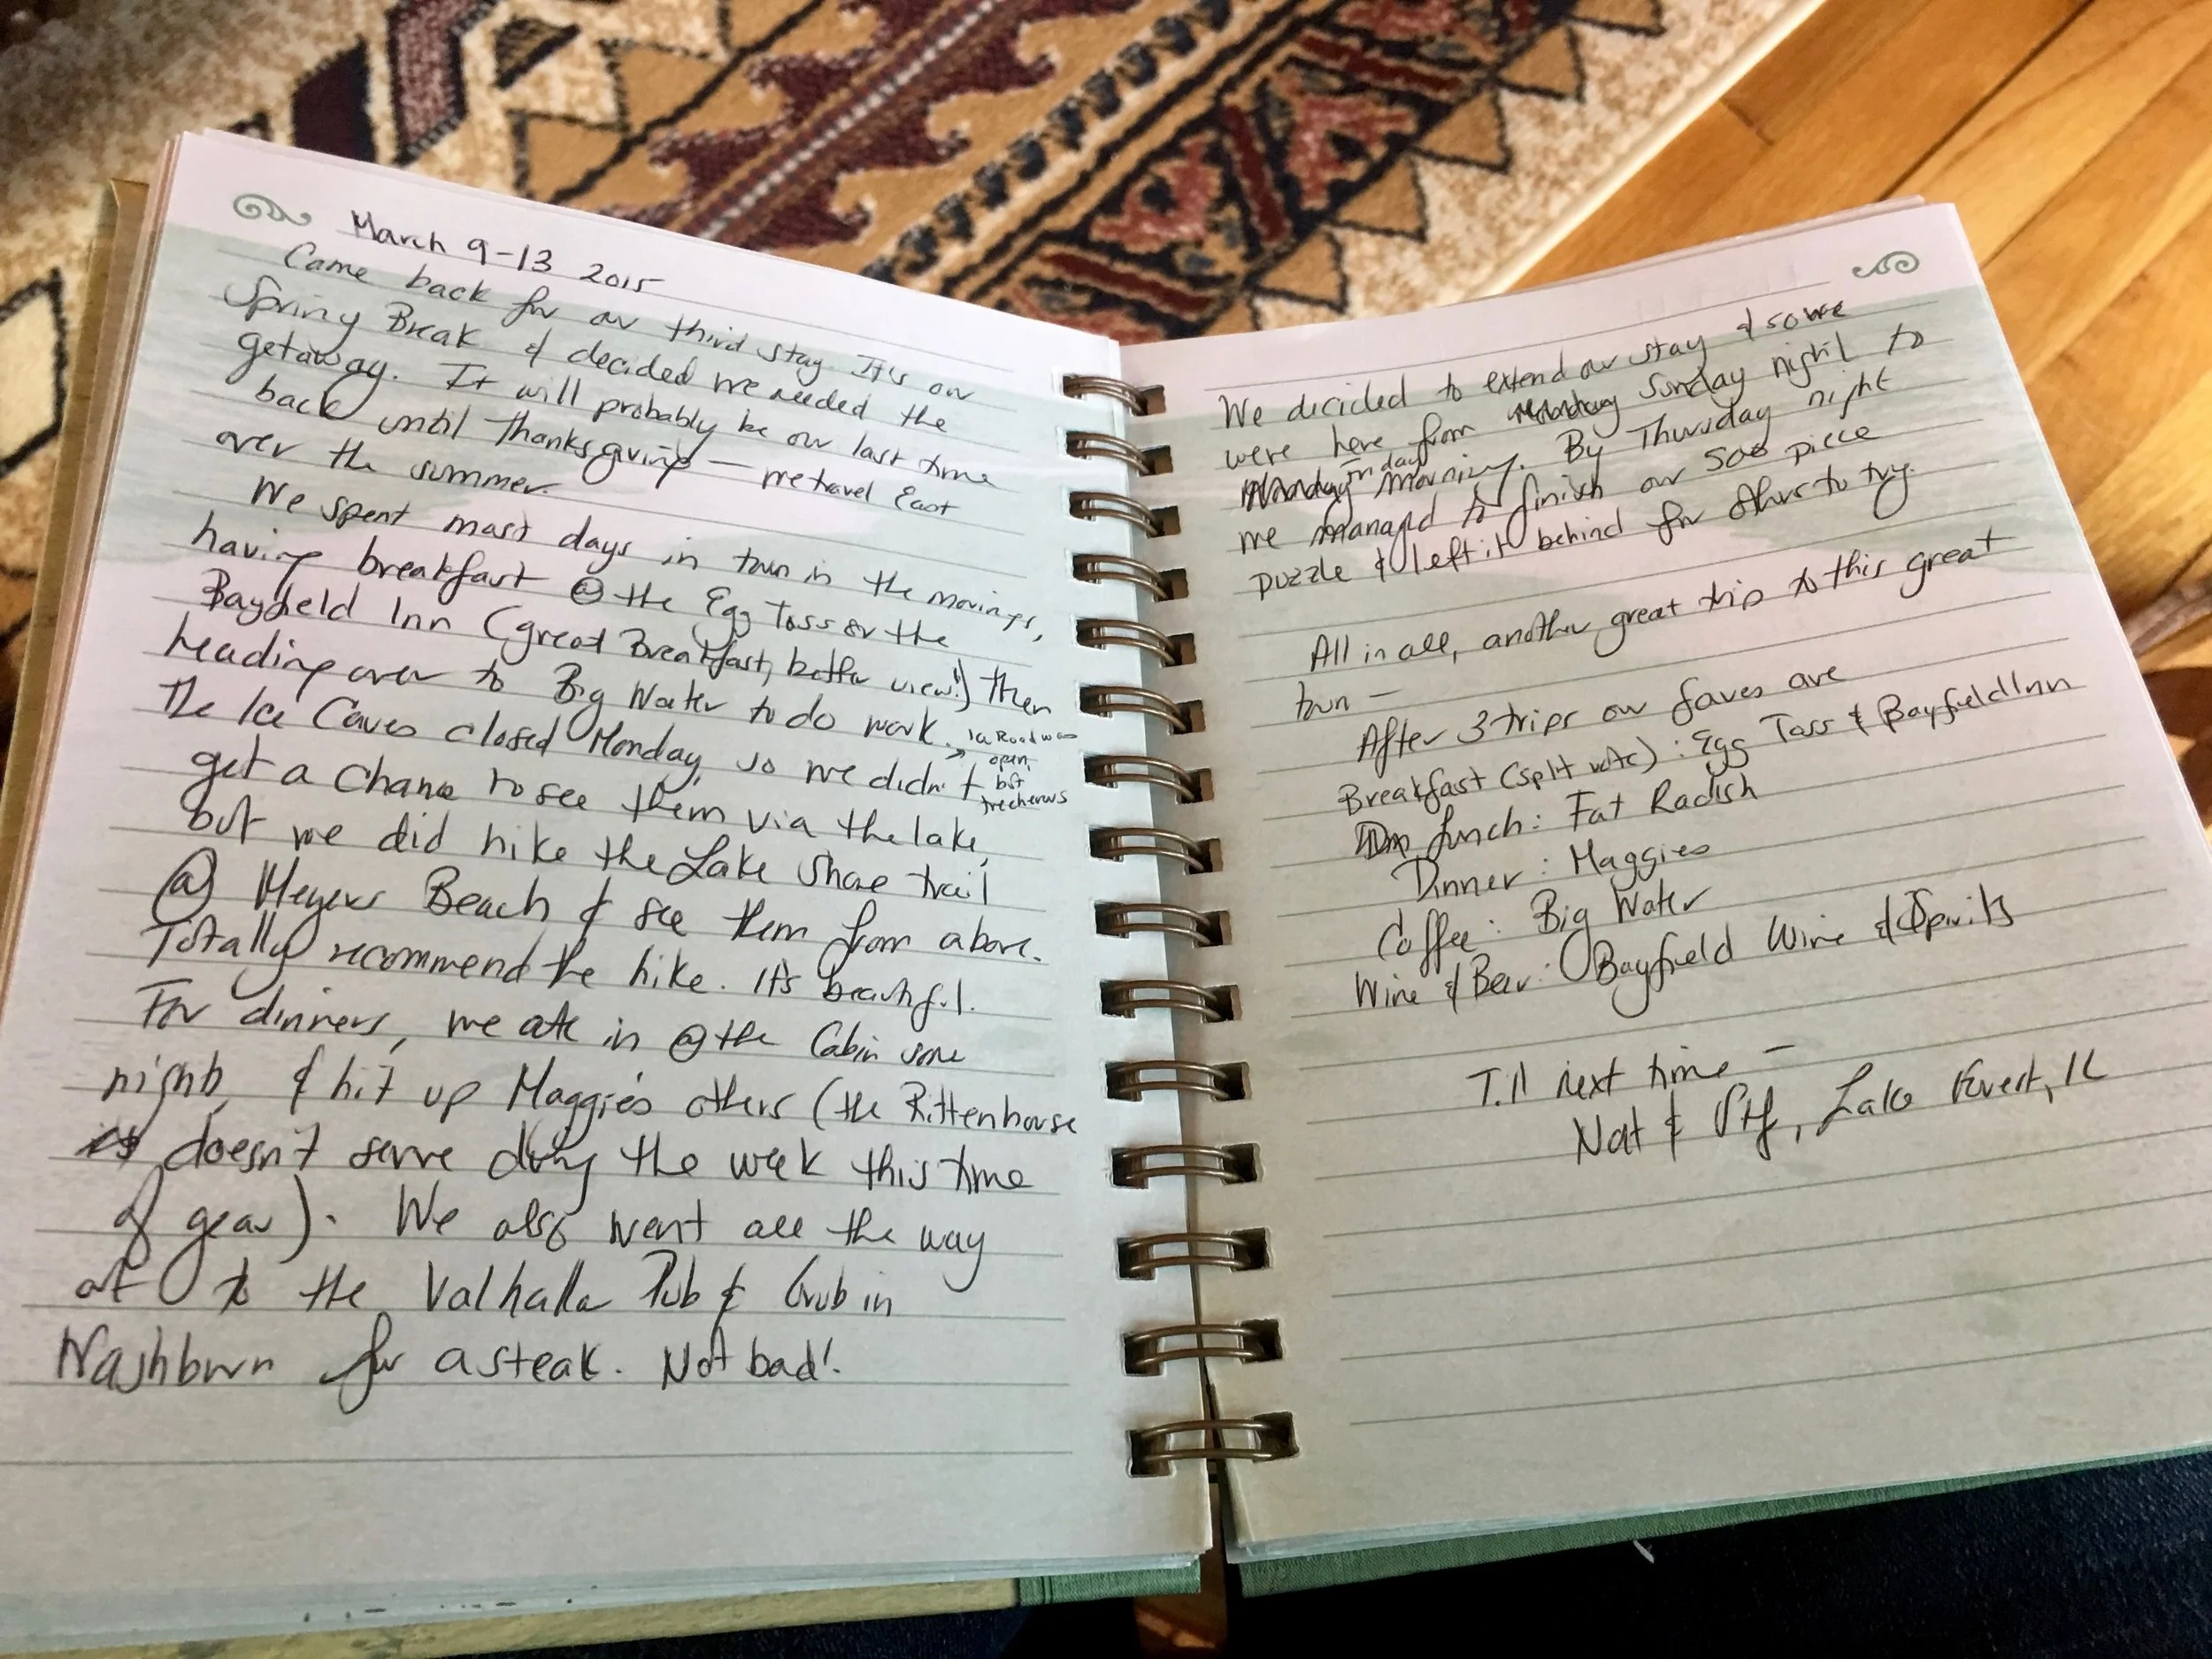 March 9-13 2015
Came back for our third stay. It's our
Spring Break & decided we needed the
getaway. It will probably be our last time
back until Thanksgiving — we travel East
over the summer.
We spent most days in town in the mornings,
having breakfast @ the Egg Toss or the
Bayfield Inn (great Breakfast, better view!) then
heading over to Big Water to do work.
The Ice Caves closed Monday, so we didn't
→ Road was
open,
but
trecherous
get a chance to see them via the lake,
but we did hike the Lake Shore trail
@ Meyers Beach & see them from above.
Totally recommend the hike. It's beautiful.
For dinners, we ate in @ the Cabin some
nights, & hit up Maggie's others (the Rittenhouse
doesn't serve during the week this time
of year). We also went all the way
out to the Valhalla Pub & Grub in
Washburn for a steak. Not bad!
We decided to extend our stay & so we
were here from Sunday night to
Friday
morning. By Thursday night
we managed to finish our 500 piece
puzzle & left it behind for others to try.
All in all, another great trip to this great
town —
After 3 trips our faves are
Breakfast (split vote): Egg Toss & Bayfield Inn
Lunch: Fat Radish
Dinner: Maggies
Coffee: Big Water
Wine & Beer: Bayfield Wine & Spirits
Till next time —
Nat & , Lake Forest, IL